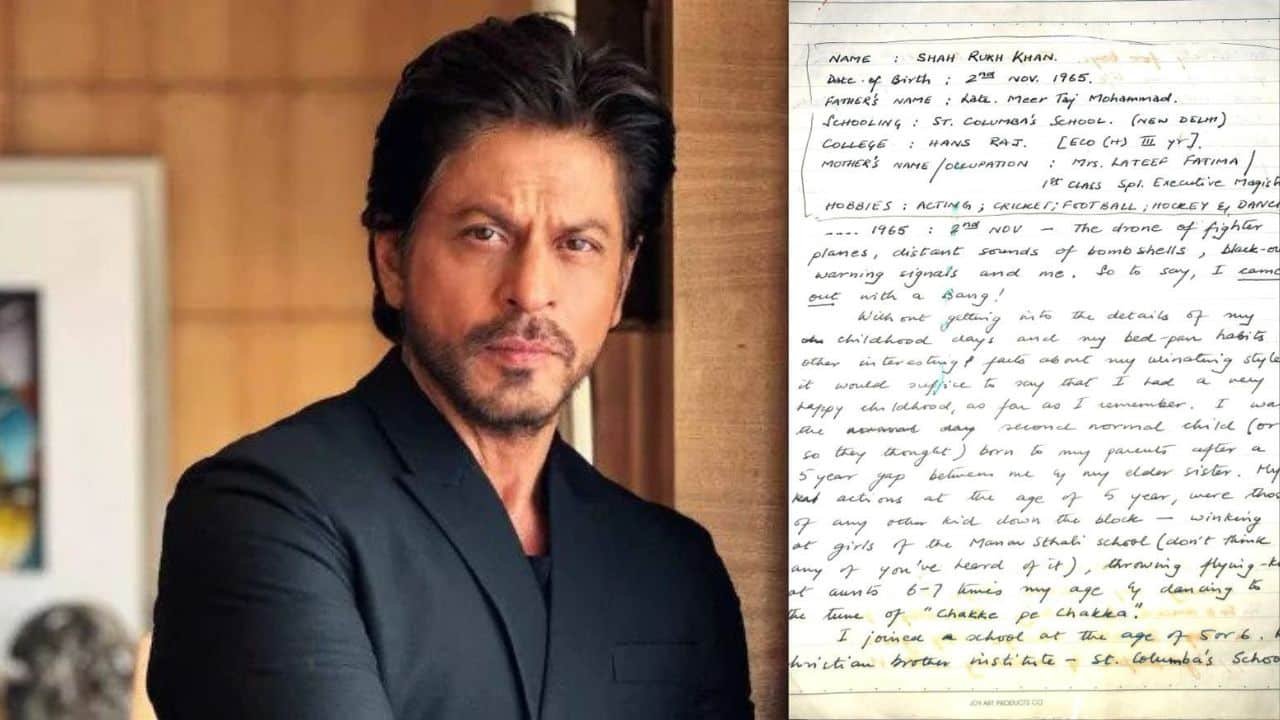 NAME : SHAH RUKH KHAN.
Date of Birth : 2nd NOV. 1965.
FATHER'S NAME : Late. Meer Taj Mohammad.
SCHOOLING : ST. COLUMBA'S SCHOOL. (NEW DELHI)
COLLEGE : HANS RAJ. [ECO (H) III yr].
MOTHER'S NAME/OCCUPATION : Mrs. LATEEF FATIMA/
1st CLASS Spl. Executive Magist
HOBBIES : ACTING; CRICKET; FOOTBALL; HOCKEY & DANC
---- 1965 : 2nd NOV — The drone of fighter
planes, distant sounds of bombshells, black-o
warning signals and me. So to say, I came
out with a Bang!
Without getting into the details of my
childhood days and my bed-pan habits
other interesting facts about my urinating style
it would suffice to say that I had a very
happy childhood, as far as I remember. I wa
the day second normal child (or
so they thought) born to my parents after a
5 year gap between me & my elder sister. My
actions at the age of 5 year, were thos
of any other kid down the block — winking
at girls of the Manav Sthali school (don't think
any of you've heard of it), throwing flying-k
at aunts 6-7 times my age & dancing to
the tune of "Chakke pe Chakka".
I joined a school at the age of 5 or 6.
hristian brother institute — St. Columba's School
JOY ART PRODUCTS CO